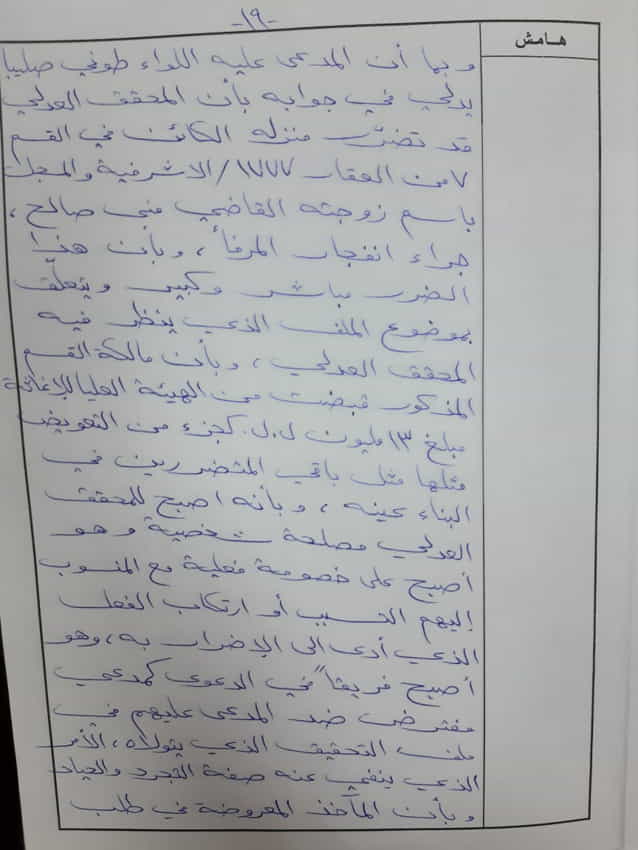 -١٩-
هامش
وبما أن المدعى عليه اللواء طوني صليبا
يدلي في جوابه بأن المحقق العدلي
قد تضرّر منزله الكائن في القسم
٧ من العقار ١٧٧٧/الاشرفية والمسجل
باسم زوجته القاضي منى صالح،
جراء انفجار المرفأ، وبأن هذا
الضرر مباشر وكبير ويتعلق
بموضوع الملف الذي ينظر فيه
المحقق العدلي، وبأن مالكة القسم
المذكور قبضت من الهيئة العليا للإغاثة
مبلغ ١٣ مليون ل.ل. كجزء من التعويض
مثلها مثل باقي المتضررين في
البناء عينه، وبأنه اصبح للمحقق
العدلي مصلحة شخصية وهو
أصبح على خصومة فعلية مع المنسوب
إليهم التسبب أو ارتكاب الفعل
الذي أدى الى الإضرار به، وهو
أصبح فريقاً في الدعوى كمدعي
مفترض ضد المدعى عليهم في
ملف التحقيق الذي يتولاه، الأمر
الذي ينفي عنه صفة التجرد والحياد
وبأن المآخذ المعروضة في طلب